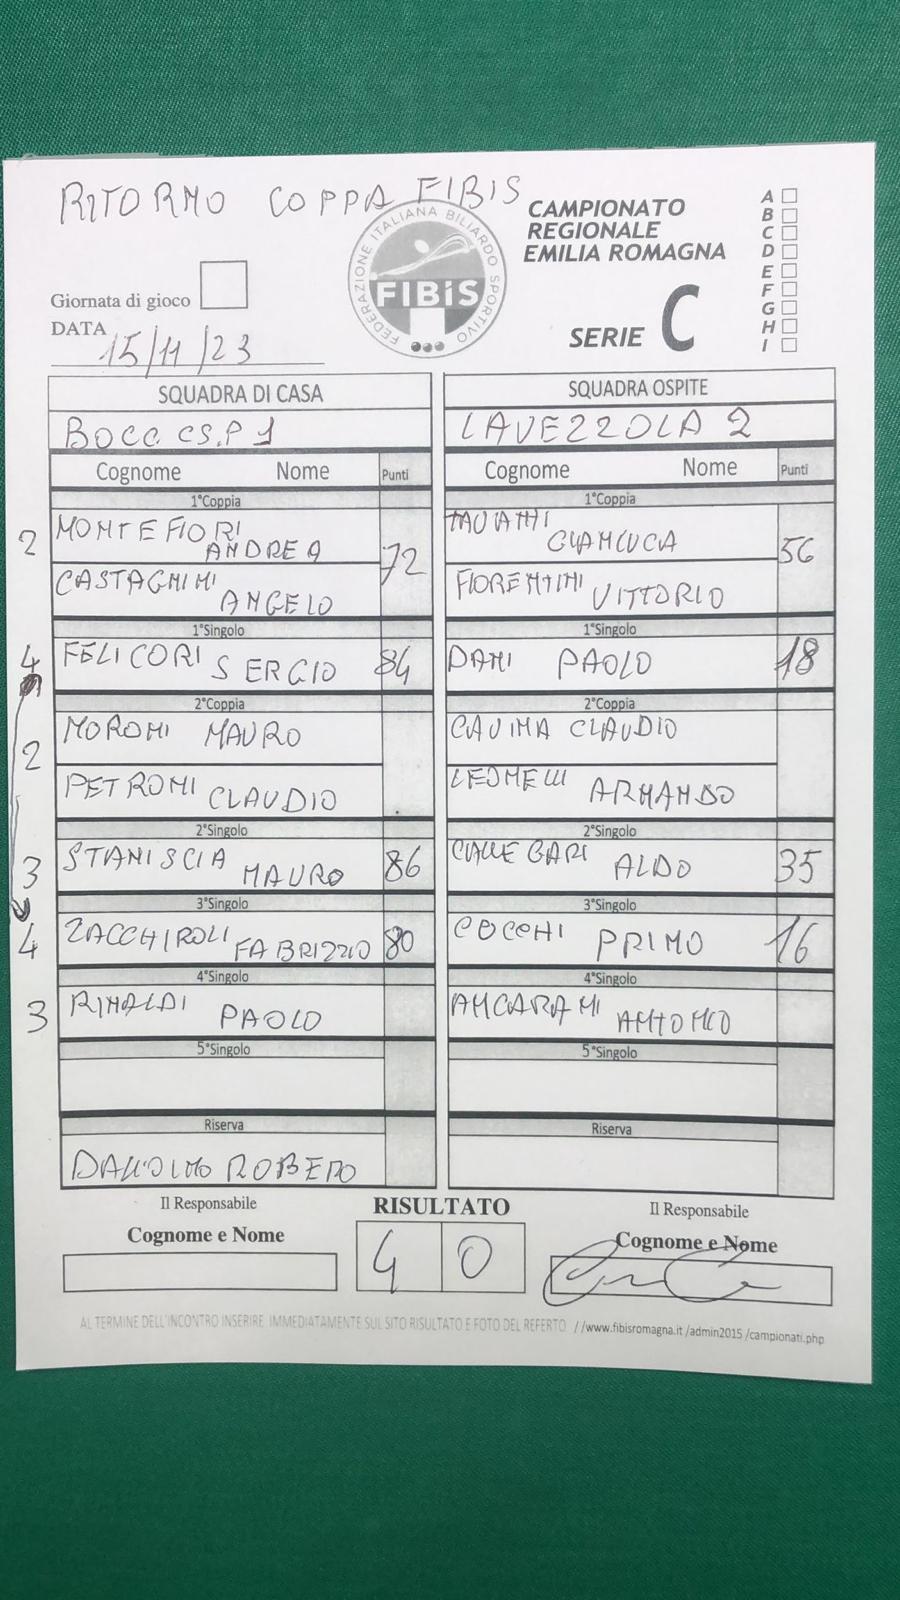 RITORNO COPPA FIBIS
FEDERAZIONE ITALIANA BILIARDO SPORTIVO
FIBiS
CAMPIONATO
REGIONALE
EMILIA ROMAGNA
SERIE C
A
B
C
D
E
F
G
H
I
Giornata di gioco
DATA
15/11/23
SQUADRA DI CASA
SQUADRA OSPITE
BOCC CS.P 1
LAVEZZOLA 2
Cognome Nome Punti
Cognome Nome Punti
1°Coppia
1°Coppia
2
MONTEFIORI
ANDREA
CASTAGNINI
ANGELO
72
TAVANTI
GIANLUCA
FIORENTINI VITTORIO
56
1°Singolo
1°Singolo
4
FELICORI SERGIO 84
DANI PAOLO 18
2°Coppia
2°Coppia
2
MORONI MAURO
PETRONI CLAUDIO
CAVINA CLAUDIO
LEONELLI ARMANDO
2°Singolo
2°Singolo
3
STANISCIA MAURO 86
CALLEGARI ALDO 35
3°Singolo
3°Singolo
4
ZACCHIROLI FABRIZZIO 80
COCCHI PRIMO 16
4°Singolo
4°Singolo
3
RINALDI PAOLO
ANCARANI ANTONIO
5°Singolo
5°Singolo
Riserva
Riserva
DALL'OLMO ROBERO
Il Responsabile
RISULTATO
Il Responsabile
Cognome e Nome
4 0
Cognome e Nome
AL TERMINE DELL'INCONTRO INSERIRE IMMEDIATAMENTE SUL SITO RISULTATO E FOTO DEL REFERTO //www.fibisromagna.it /admin2015 /campionati.php